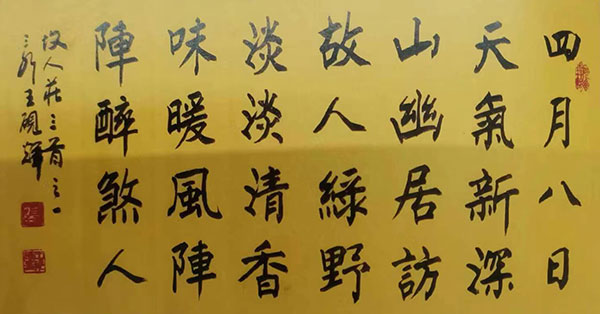 四月八日
天氣新深
山幽居訪
故人綠野
淡淡清香
味暖風陣
陣醉煞人
故人莊三首之一
王硯輝